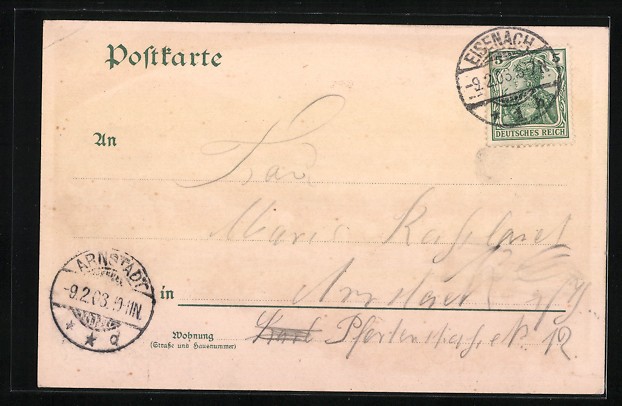 Postkarte
EISENACH
-9.2.03.
5 5
DEUTSCHES REICH
An
Frau
Maria
in Arnstadt
ARNSTADT
-9.2.03. 9-11N.
* * d
Wohnung
(Straße und Hausnummer)
Karl Pförtenstraße No 12